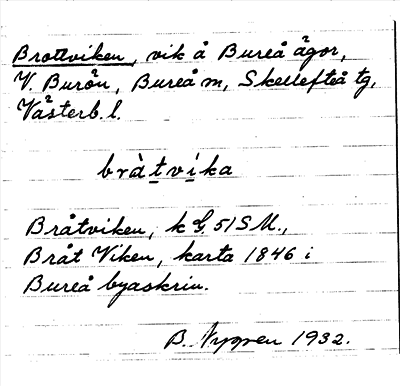 Brottviken, vik å Bureå ägor,
V. Burön, Bureå m, Skellefteå tg,
Västerb. l.
bråtvika
Bråtviken, k G 51 SM.,
Bråt Viken, karta 1846 i
Bureå byaskrin.
B. Nygren 1932.